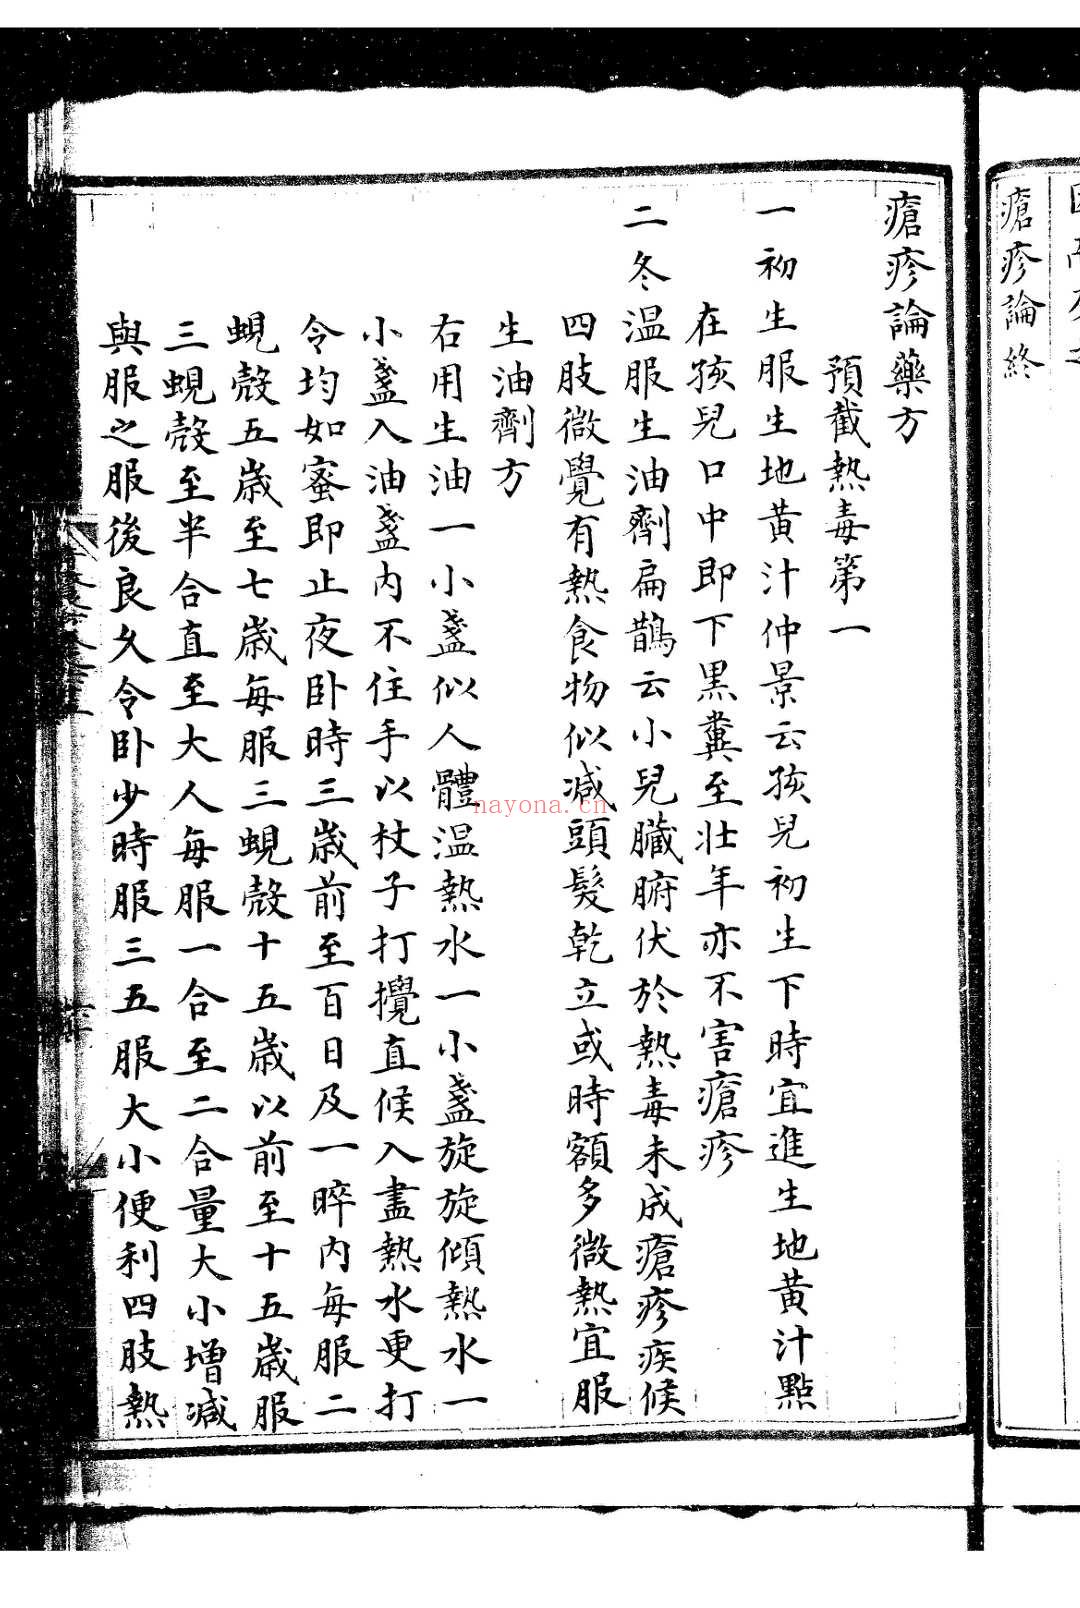 瘡疹論終
瘡疹論藥方
預截熱毒第一
一初生服生地黄汁仲景云孩兒初生下時宜進生地黄汁點
在孩兒口中即下黒糞至壮年亦不害瘡疹
二冬温服生油劑扁鵲云小兒臟腑伏於熱毒未成瘡疹疾候
四肢微覺有熱食物似减頭髮乾立或時額多微熱宜服
生油劑方
右用生油一小盞似人體温熱水一小盞旋旋傾熱水一
小盞入油盞内不住手以杖子打攪直候入盡熱水更打
令均如蜜即止夜卧時三歳前至百日及一晬内每服二
蜆殻五歳至七歳每服三蜆殻十五歳以前至十五歳服
三蜆殻至半合直至大人每服一合至二合量大小増减
與服之服後良久令卧少時服三五服大小便利四肢熱
nayona.cn